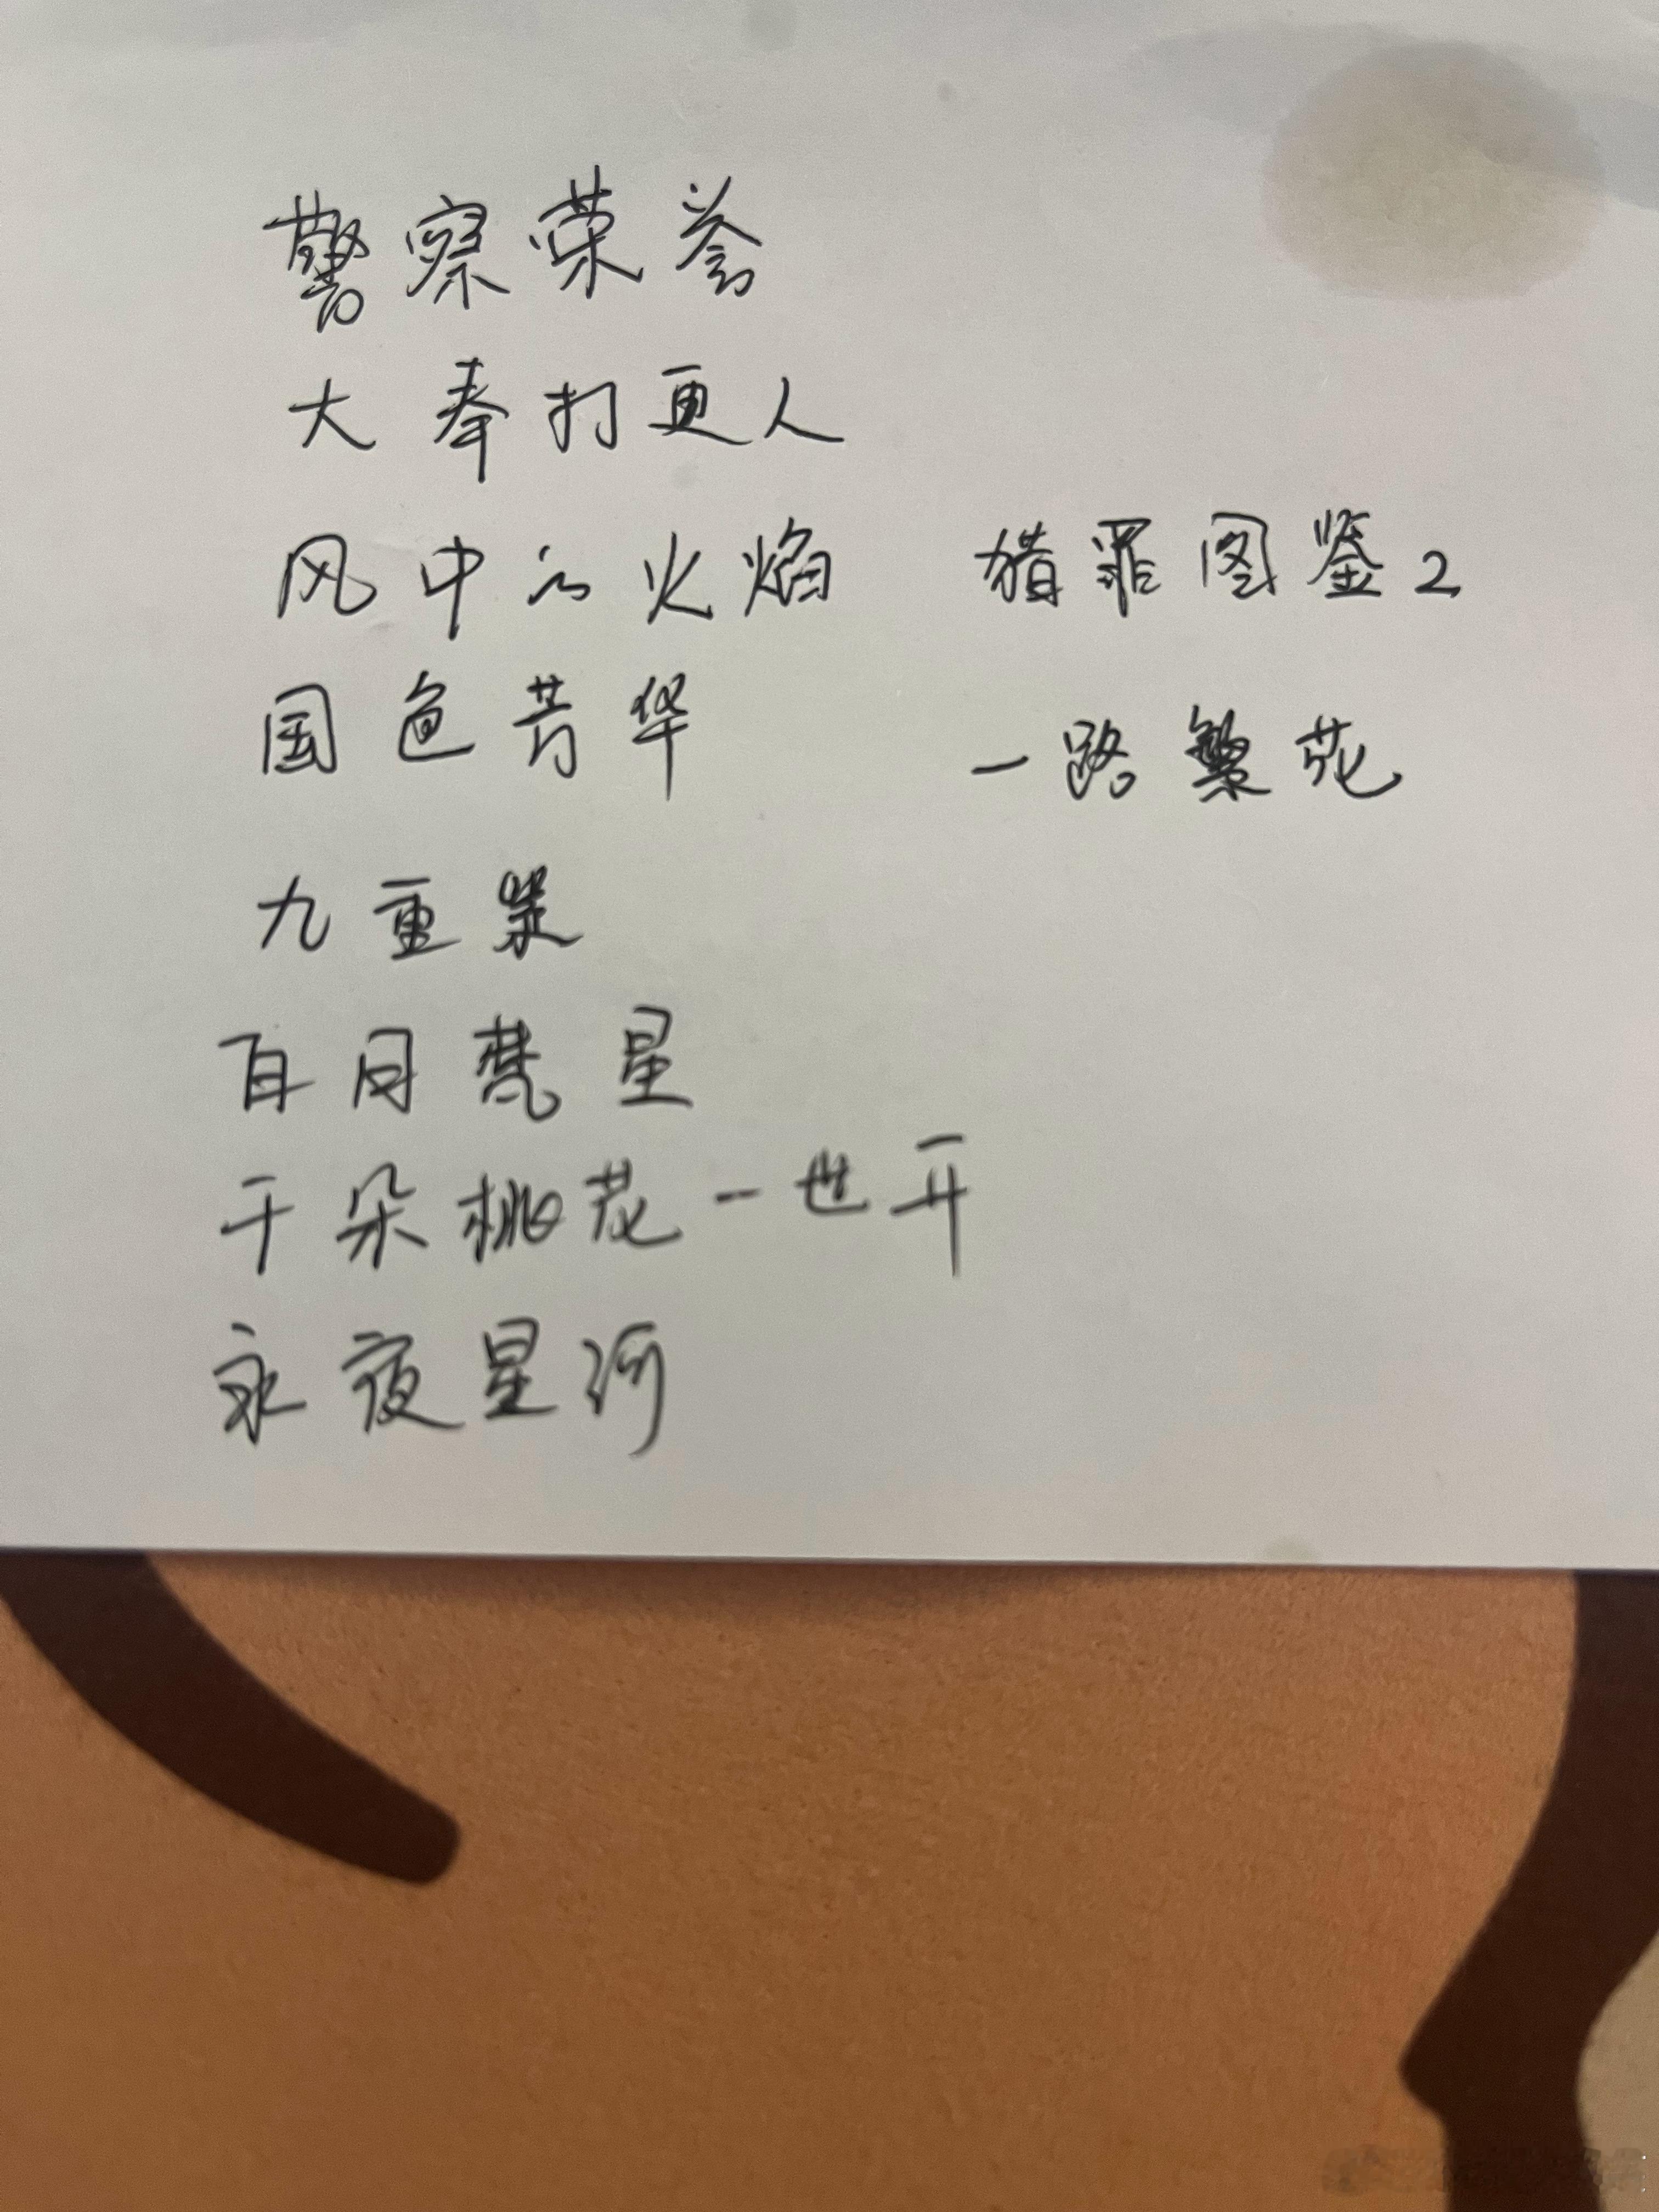 警察荣誉
大奉打更人
风中的火焰 猎罪图鉴2
国色芳华 一路繁花
九重紫
白月梵星
千朵桃花一世开
永夜星河